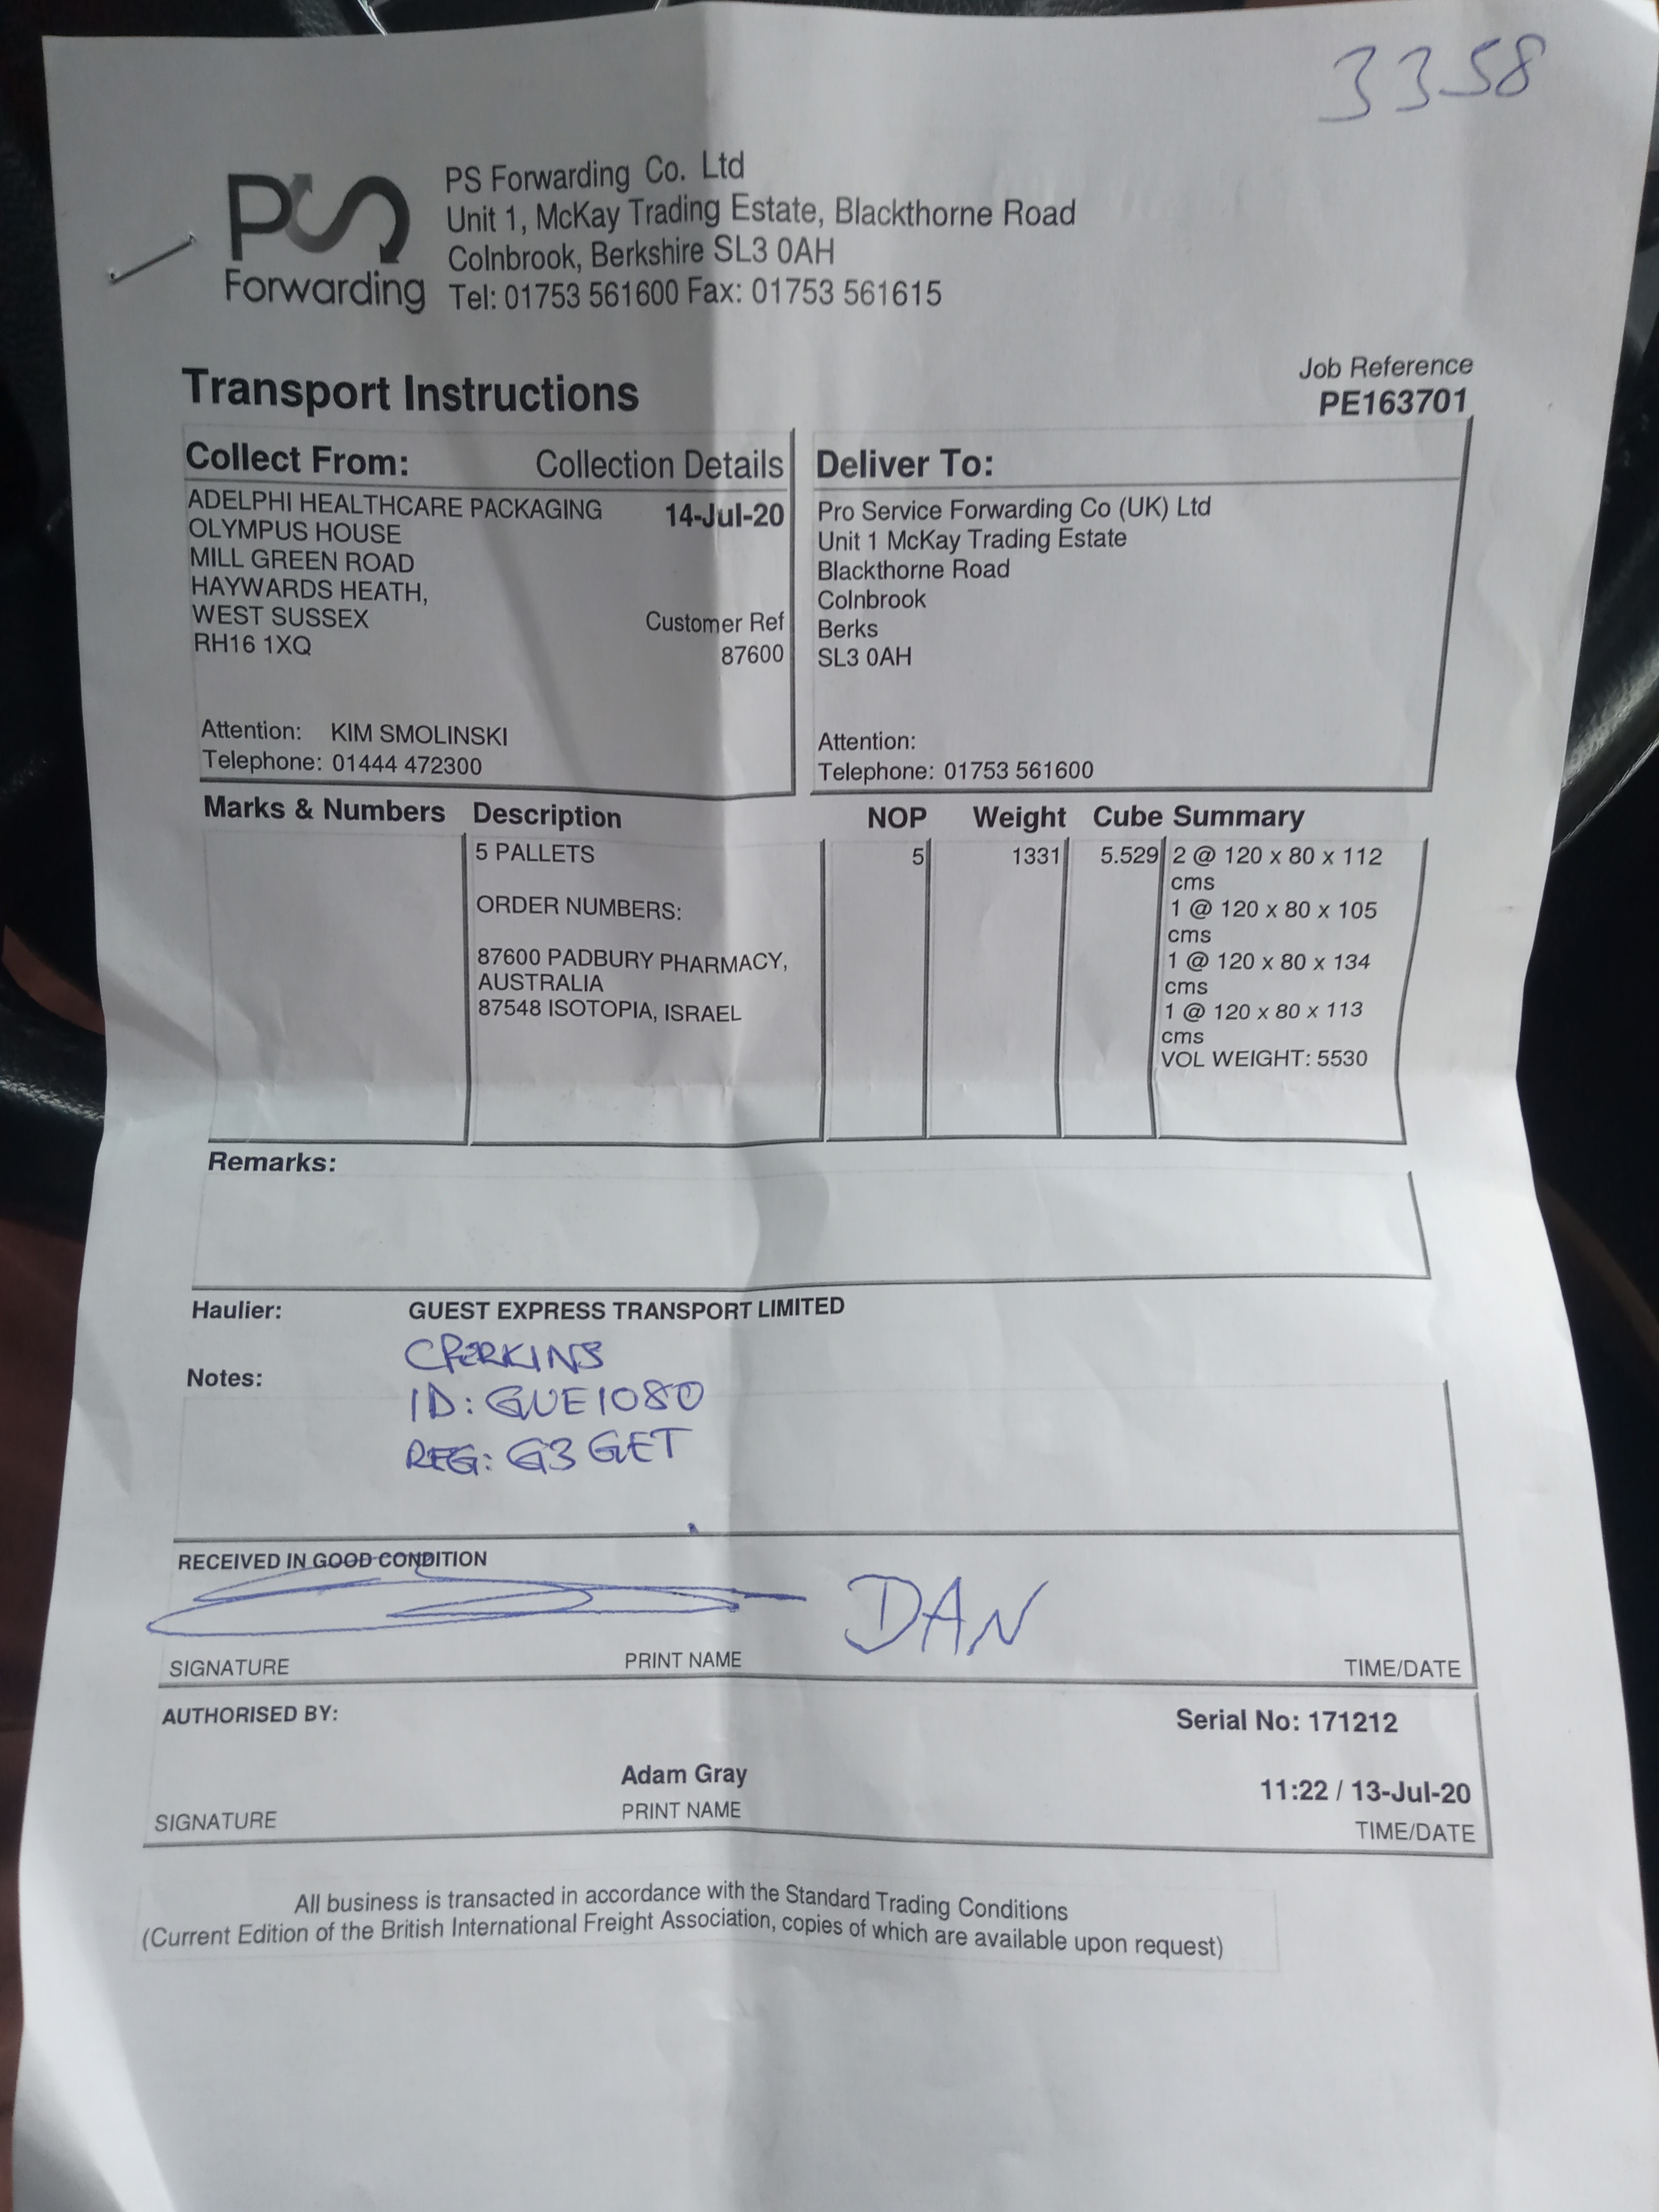 3358
PS
Forwarding
PS Forwarding Co. Ltd
Unit 1, McKay Trading Estate, Blackthorne Road
Colnbrook, Berkshire SL3 0AH
Tel: 01753 561600 Fax: 01753 561615
Job Reference
PE163701
Transport Instructions
Collect From: Collection Details
ADELPHI HEALTHCARE PACKAGING 14-Jul-20
OLYMPUS HOUSE
MILL GREEN ROAD
HAYWARDS HEATH,
WEST SUSSEX Customer Ref
RH16 1XQ 87600
Attention: KIM SMOLINSKI
Telephone: 01444 472300
Deliver To:
Pro Service Forwarding Co (UK) Ltd
Unit 1 McKay Trading Estate
Blackthorne Road
Colnbrook
Berks
SL3 0AH
Attention:
Telephone: 01753 561600
Marks & Numbers Description NOP Weight Cube Summary
5 PALLETS 5 1331 5.529 2 @ 120 x 80 x 112
cms
ORDER NUMBERS: 1 @ 120 x 80 x 105
cms
87600 PADBURY PHARMACY, 1 @ 120 x 80 x 134
AUSTRALIA cms
87548 ISOTOPIA, ISRAEL 1 @ 120 x 80 x 113
cms
VOL WEIGHT: 5530
Remarks:
Haulier: GUEST EXPRESS TRANSPORT LIMITED
CPERKINS
Notes:
ID: GUE1080
REG: G3 GET
RECEIVED IN GOOD CONDITION
DAN
SIGNATURE PRINT NAME TIME/DATE
AUTHORISED BY: Serial No: 171212
Adam Gray 11:22 / 13-Jul-20
SIGNATURE PRINT NAME TIME/DATE
All business is transacted in accordance with the Standard Trading Conditions
(Current Edition of the British International Freight Association, copies of which are available upon request)